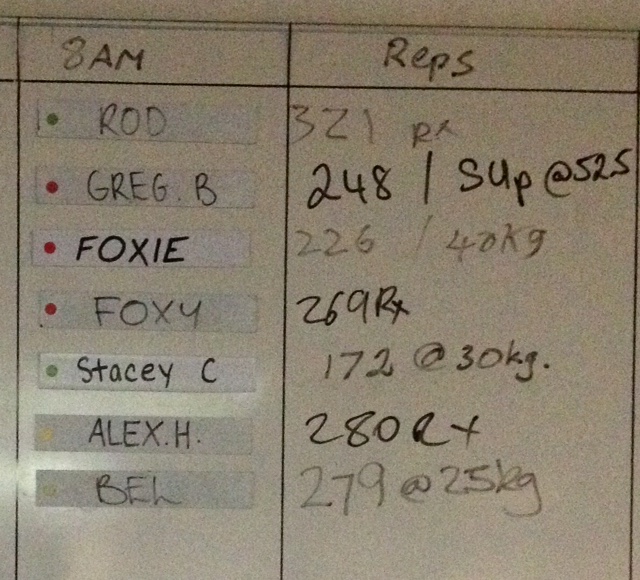 8AM Reps
ROD 321 RX
GREG. B 248 / SUp @525
FOXIE 226 / 40kg
FOXY 269 Rx
Stacey C 172 @ 30kg.
ALEX.H. 280 RX
BEL 279 @ 25kg